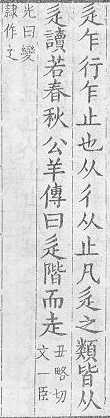 辵乍行乍止也从彳从止凡辵之類皆从
辵讀若春秋公羊傳曰辵階而走
丑略切
文一臣
光曰變
隸作辶